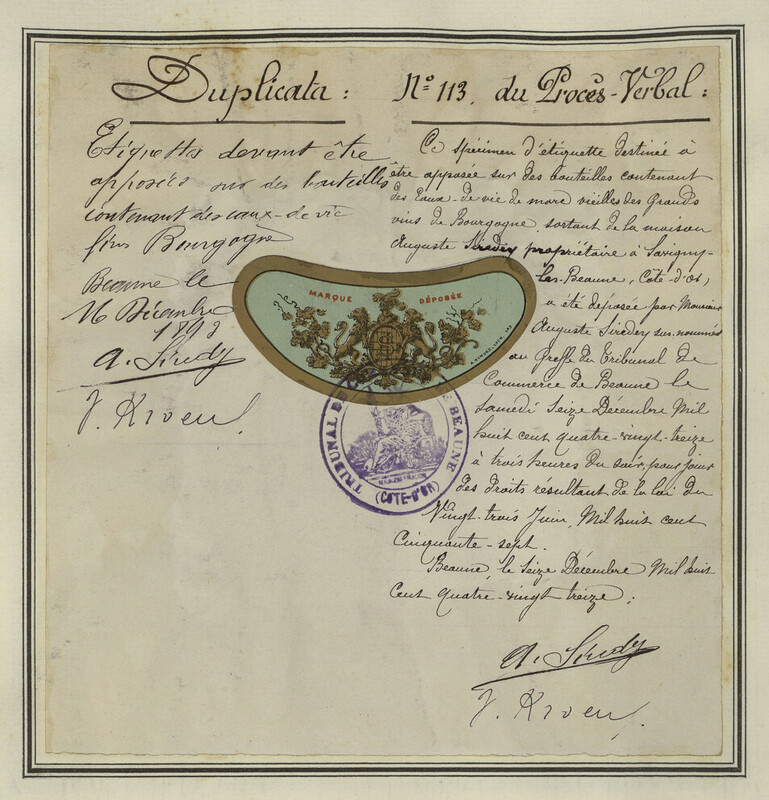 Duplicata :
Etiquettes devant être
apposées sur des bouteilles
contenant des eaux-de-vie
fines Bourgogne
Beaune le
16 Décembre
1893
A. Siredey
J. Kroen
N° 113. du Procès-Verbal :
Ce spécimen d'étiquette destinée à
être apposée sur des bouteilles contenant
des Eaux-de-vie de marc vieilles des Grands
vins de Bourgogne, sortant de la maison
Auguste Siredey propriétaire à Savigny-
les-Beaune, Côte-d'or,
a été déposée par Monsieur
Auguste Siredey sus-nommé
au Greffe du Tribunal de
Commerce de Beaune le
samedi Seize Décembre Mil
huit cent quatre-vingt-treize
à trois heures du soir, pour jouir
des droits résultant de la loi du
Vingt-trois Juin, Mil huit cent
Cinquante-sept.
Beaune, le Seize Décembre Mil huit
Cent quatre-vingt treize :
A. Siredey
J. Kroen
MARQUE DÉPOSÉE
TRIBUNAL DE BEAUNE
(COTE-D'OR)